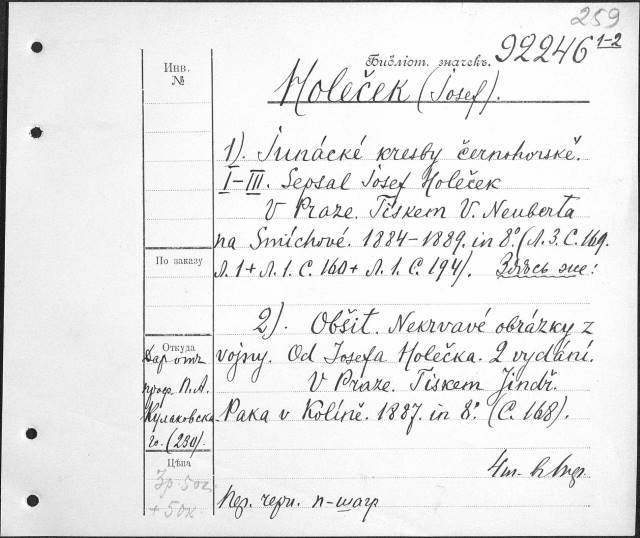 259
Библіот. значекъ. 92246 1-2
Инв.
№
Holeček (Josef).
1). Junácké kresby černohorské.
I–III. Sepsal Josef Holeček
V Praze. Tiskem V. Neuberta
na Smíchově. 1884–1889. in 8º. (Л. 3. С. 169.
Л. 1 + Л. 1. С. 160 + Л. 1. С. 194). Здѣсь же:
По заказу
2). Obšit. Nekrvavé obrázky z
vojny. Od Josefa Holečka. 2 vydání.
V Praze. Tiskem Jindř.
Paka v Kolíně. 1887. in 8º. (С. 168).
Откуда
Даръ отъ
проф. П. А.
Кулаковска-
го. (230).
Цѣна
3р 50к
+ 50к
4 т. в
Пер. черн.